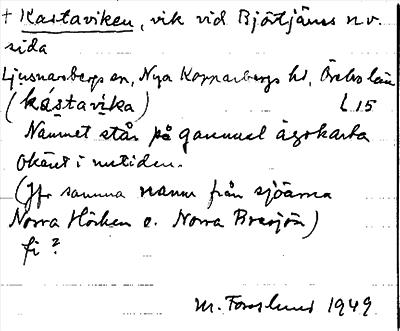 + Kastaviken, vik vid Björtjärns n.v.
sida
Ljusnarsbergs sn, Nya Kopparbergs hd, Örebro län
(kástavika) L 15
Namnet står på gammal ägokarta
Okänt i nutiden.
(Jfr samma namn från sjöarna
Norra Hörken o. Norra Bresjön)
fi?
M. Forslund 1949